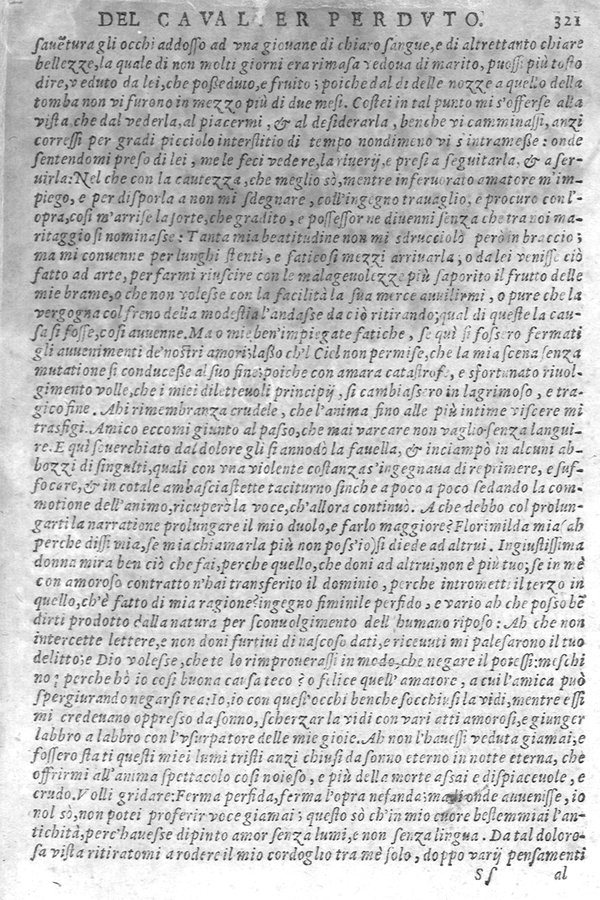 DEL CAVALIER PERDVTO. 321
sauẽtura gli occhi addosso ad vna giouane di chiaro sangue, e di altrettanto chiare
bellezze, la quale di non molti giorni era rimasa vedoua di marito, puossi più tosto
dire, veduto da lei, che poßeduto, e fruito; poiche dal dì delle nozze a quello della
tomba non vi furono in mezzo più di due mesi. Costei in tal punto mi s'offerse alla
vista, che dal vederla, al piacermi, & al desiderarla, benche vi camminassi, anzi
corressi per gradi picciolo interstitio di tempo nondimeno vi s'intrameße: onde
sentendomi preso di lei, me le feci vedere, la riuerij, e presi a seguitarla, & a ser-
uirla: Nel che con la cautezza, che meglio sò, mentre inferuorato amatore m'im-
piego, e per disporla a non mi sdegnare, coll'ingegno trauaglio, e procuro con l'-
opra, così m'arrise la sorte, che gradito, e possessor ne diuenni senza che tra noi ma-
ritaggio si nominasse: Tanta mia beatitudine non mi sdrucciolò però in braccio;
ma mi conuenne per lunghi stenti, e faticosi mezzi arriuarla; o da lei venisse ciò
fatto ad arte, per farmi riuscire con le malageuolezze più saporito il frutto delle
mie brame, o che non volesse con la facilità la sua merce auuilirmi, o pure che la
vergogna col freno della modestia l'andasse da ciò ritirando; qual di queste la cau-
sa si fosse, così auuenne. Ma o mie ben'impiegate fatiche, se quì si fossero fermati
gli auuenimenti de'nostri amori: laßo ch'l Ciel non permise, che la mia scena senza
mutatione si conduceße al suo fine; poiche con amara catastrofe, e sfortunato riuol-
gimento volle, che i miei dilettevoli principij, si cambiassero in lagrimoso, e tra-
gico fine. Ahi rimembranza crudele, che l'anima fino alle più intime viscere mi
trasfigi. Amico eccomi giunto al passo, che mai varcare non vaglio senza langui-
re. E quì souerchiato dal dolore gli si annodò la fauella, & inciampò in alcuni ab-
bozzi di singulti, quali con vna violente costanza s'ingegnaua di reprimere, e suf-
focare, & in cotale ambascia stette taciturno sinche a poco a poco sedando la com-
motione dell'animo, ricuperò la voce, ch'allora continuò. A che debbo col prolun-
garti la narratione prolungare il mio duolo, e farlo maggiore? Florimilda mia (ah
perche dissi mia, se mia chiamarla più non poss'io) si diede ad altrui. Ingiustissima
donna mira ben ciò che fai, perche quello, che doni ad altrui, non è più tuo; se in mè
con amoroso contratto n'hai transferito il dominio, perche intrometti il terzo in
quello, ch'è fatto di mia ragione? ingegno fiminile perfido, e vario ah che posso bẽ
dirti prodotto dalla natura per sconuolgimento dell'humano riposo: Ah che non
intercette lettere, e non doni furtiui di nascoso dati, e riceuuti mi palesarono il tuo
delitto; e Dio volesse, che te lo rimprouerassi in modo, che negare il potessi: meschi
no? perche hò io così buona causa teco? o felice quell'amatore, a cui l'amica può
spergiurando negarsi rea: Io, io con quest'occhi benche socchiusi la vidi, mentre essi
mi credeuano oppresso da sonno, scherzar la vidi con vari atti amorosi, e giunger
labbro a labbro con l'vsurpatore delle mie gioie. Ah non l'hauessi veduta giamai, e
fossero stati questi miei lumi tristi anzi chiusi da sonno eterno in notte eterna, che
offrirmi all'anima spettacolo così noioso, e più della morte assai e dispiaceuole, e
crudo. Volli gridare: Ferma perfida, ferma l'opra nefanda; ma di onde auuenisse, io
nol sò, non potei proferir voce giamai; questo sò ch'in mio cuore bestemmiai l'an-
tichità, perc'hauesse dipinto amor senza lumi, e non senza lingua. Da tal doloro-
sa vista ritiratomi a rodere il mio cordoglio tra mè solo, doppo varij pensamenti
Ss al